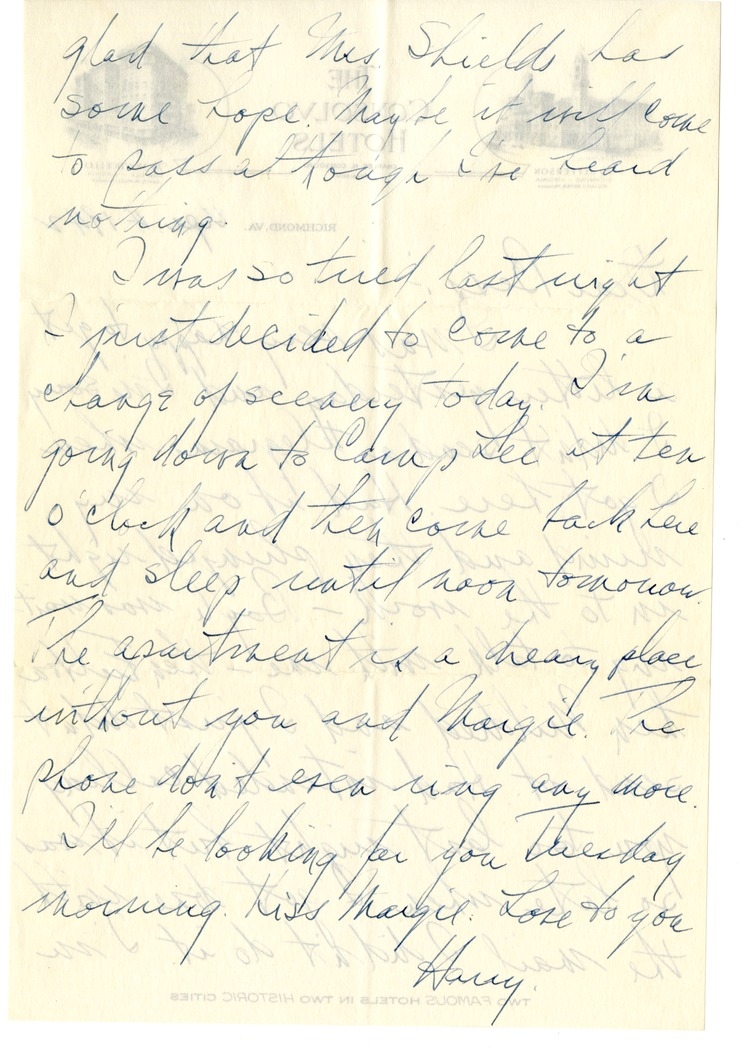 glad that Mrs. Shields has
some hope. Maybe it will come
to pass although I've heard
nothing.
I was so tired last night
I just decided to come to a
change of scenery today. I'm
going down to Camp Lee at ten
o'clock and then come back here
and sleep until noon tomorrow.
The apartment is a dreary place
without you and Margie. The
phone don't even ring any more.
I'll be looking for you Tuesday
morning. Kiss Margie. Love to you
Harry.
THE
HOTELS
RICHMOND, VA.
TWO FAMOUS HOTELS IN TWO HISTORIC CITIES